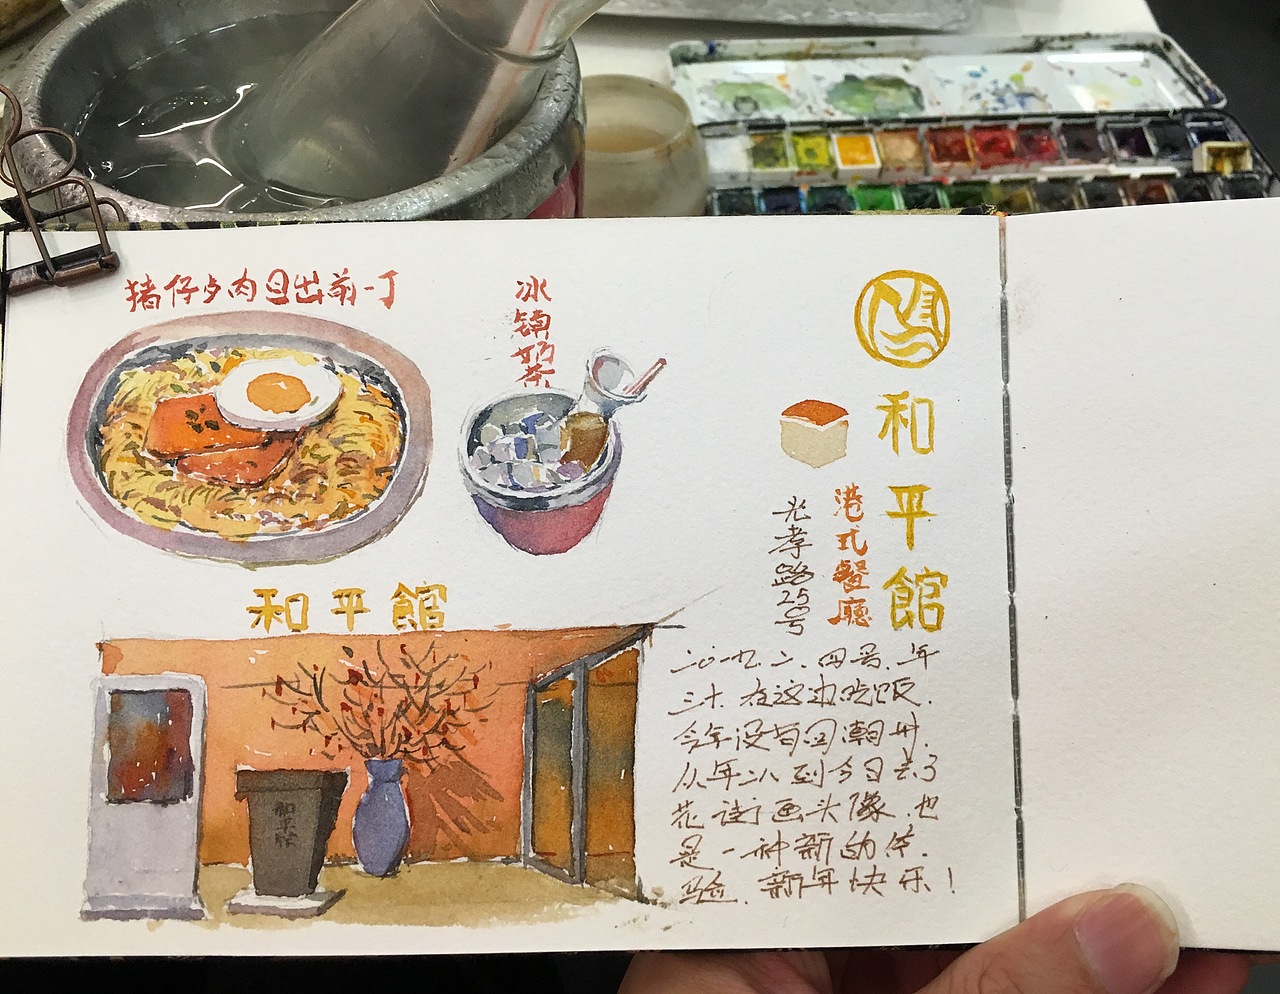 猪仔歺肉旦出前一丁
冰镇奶茶
和平館
港式餐廳
光孝路25号
和平館
二〇一九.二.四号.年
三十.在这边吃饭.
今年没有回潮州.
从年二八到今日去了
花街画头像.也
是一种新的体
验.新年快乐!